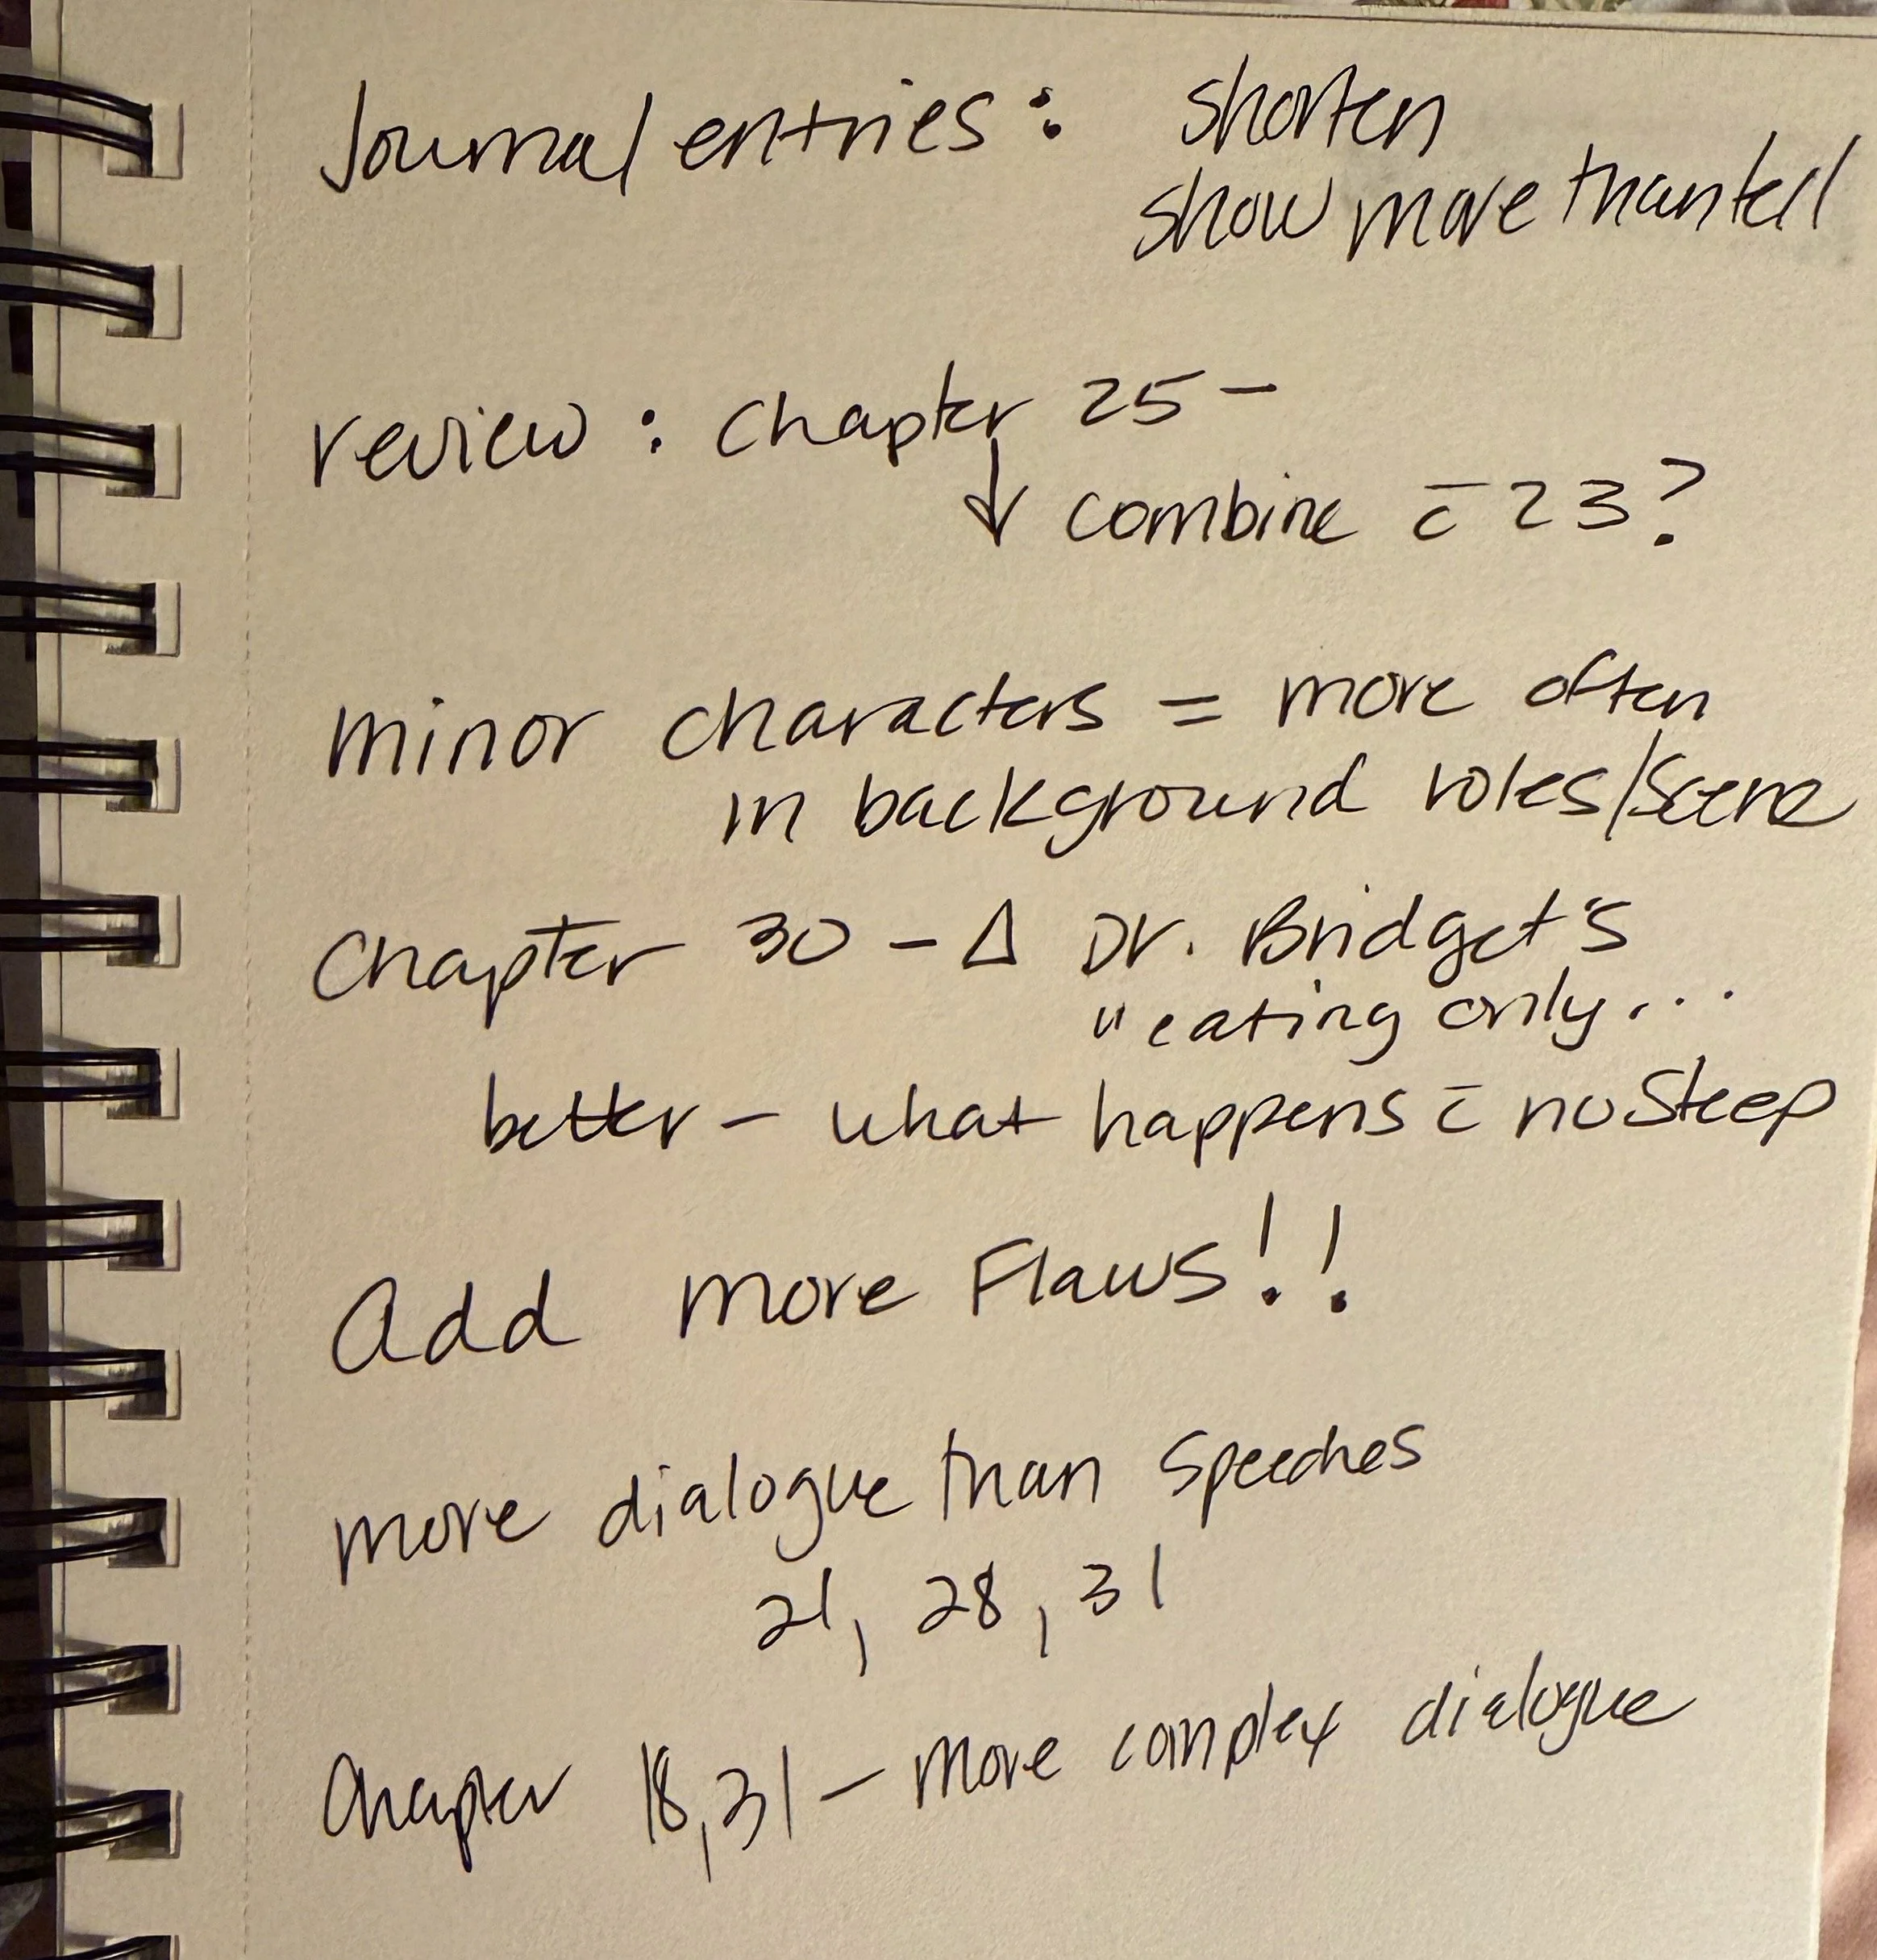 Journal entries: shorten
show more than tell
review: Chapter 25 -
↓ combine c̄ 23?
minor characters = more often
in background roles/scene
Chapter 30 - Δ Dr. Bridget's
"eating only...
better - what happens c̄ no sleep
Add more Flaws!!
more dialogue than speeches
21, 28, 31
Chapter 18, 31 - more complex dialogue